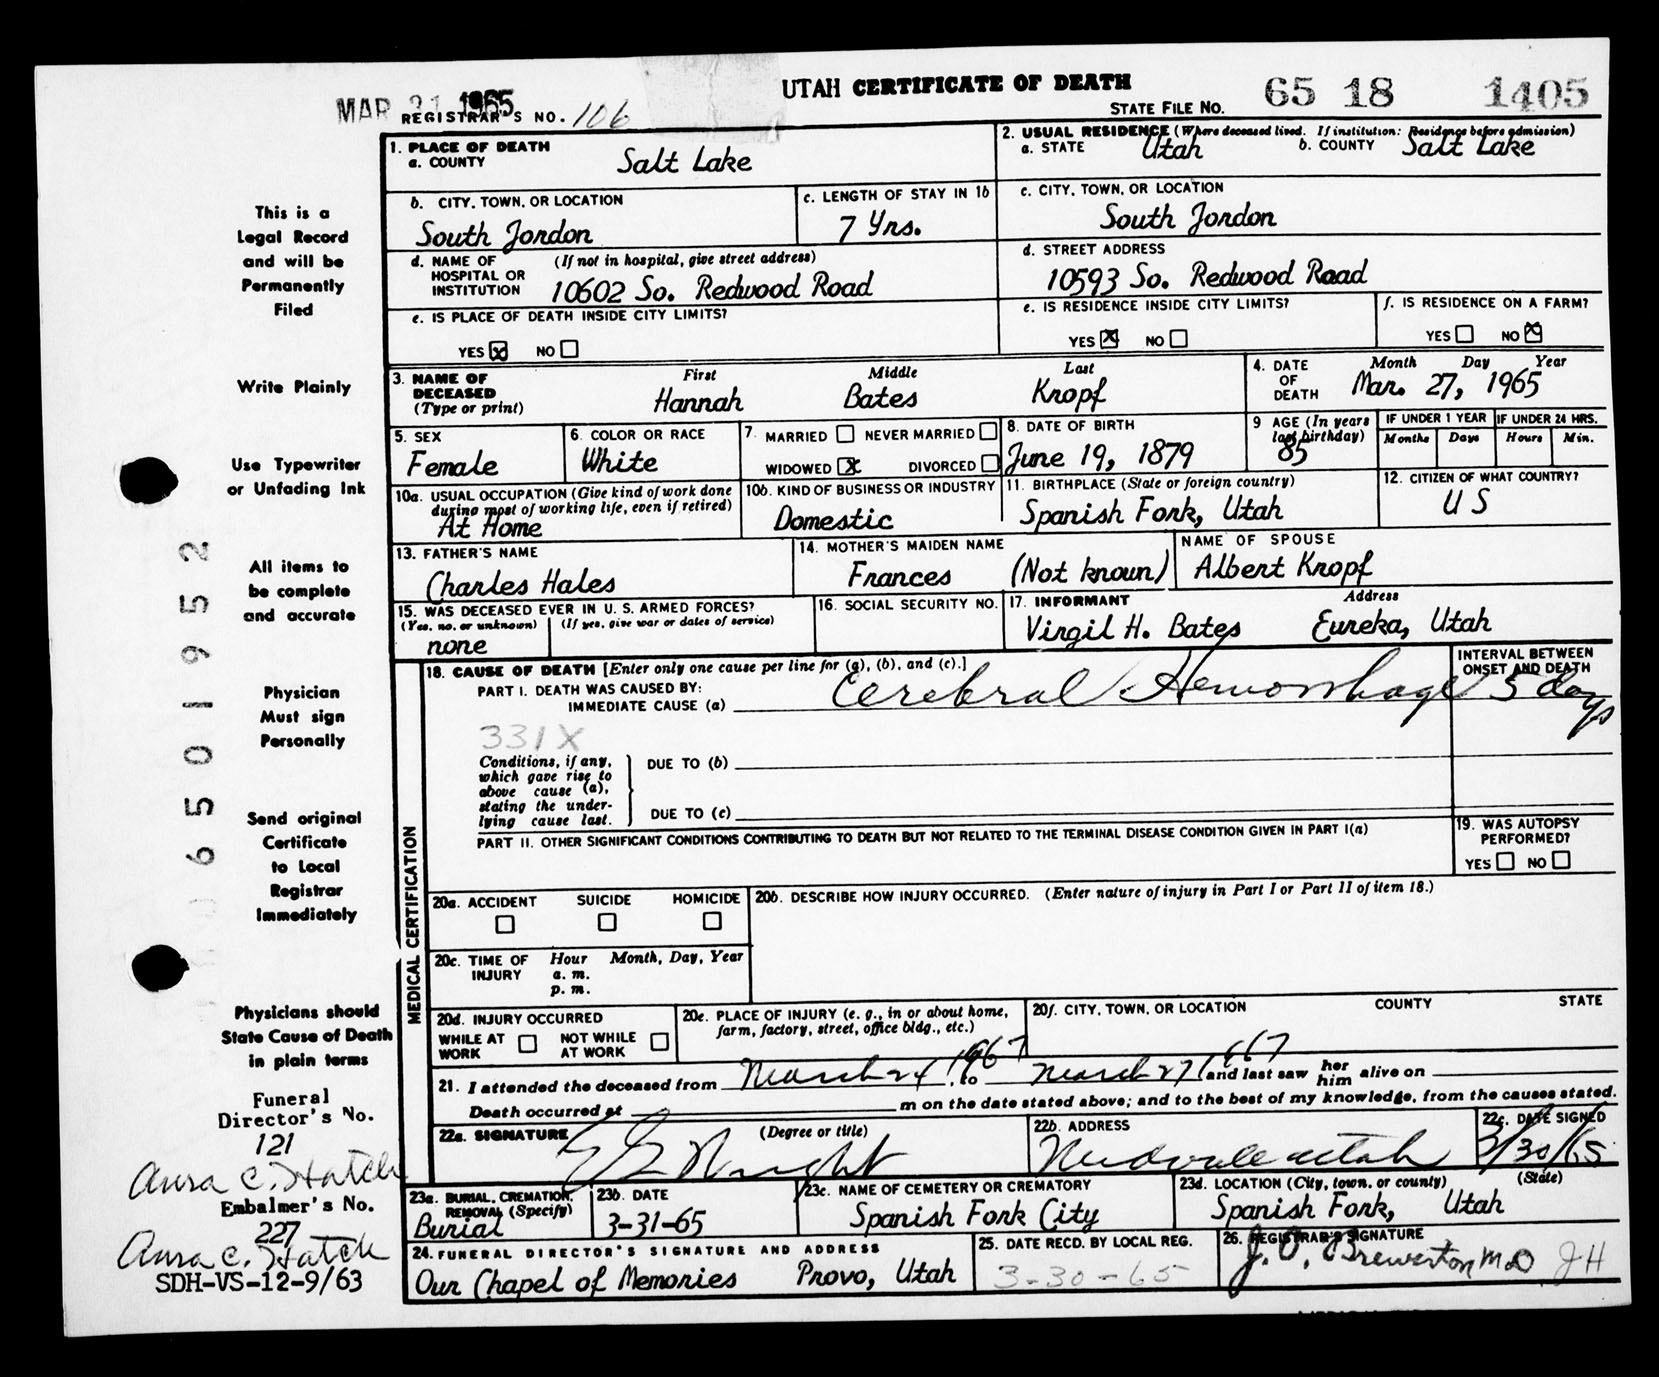 UTAH CERTIFICATE OF DEATH
MAR 31 1965
REGISTRAR'S NO. 106
STATE FILE NO. 65 18 1405
1. PLACE OF DEATH
a. COUNTY Salt Lake
2. USUAL RESIDENCE (Where deceased lived. If institution: Residence before admission)
a. STATE Utah b. COUNTY Salt Lake
b. CITY, TOWN, OR LOCATION South Jordon
c. LENGTH OF STAY IN 1b 7 Yrs.
c. CITY, TOWN, OR LOCATION South Jordon
d. NAME OF HOSPITAL OR INSTITUTION (If not in hospital, give street address) 10602 So. Redwood Road
d. STREET ADDRESS 10593 So. Redwood Road
e. IS PLACE OF DEATH INSIDE CITY LIMITS?
YES X NO
e. IS RESIDENCE INSIDE CITY LIMITS?
YES X NO
f. IS RESIDENCE ON A FARM?
YES NO X
3. NAME OF DECEASED (Type or print)
First Middle Last
Hannah Bates Knopf
4. DATE OF DEATH Month Day Year
Mar. 27, 1965
5. SEX Female
6. COLOR OR RACE White
7. MARRIED NEVER MARRIED
WIDOWED X DIVORCED
8. DATE OF BIRTH June 19, 1879
9 AGE (In years last birthday) 85
IF UNDER 1 YEAR IF UNDER 24 HRS.
Months Days Hours Min.
10a. USUAL OCCUPATION (Give kind of work done during most of working life, even if retired)
At Home
10b. KIND OF BUSINESS OR INDUSTRY
Domestic
11. BIRTHPLACE (State or foreign country)
Spanish Fork, Utah
12. CITIZEN OF WHAT COUNTRY?
U S
13. FATHER'S NAME
Charles Hales
14. MOTHER'S MAIDEN NAME
Frances (Not known)
NAME OF SPOUSE
Albert Knopf
15. WAS DECEASED EVER IN U. S. ARMED FORCES?
(Yes, no, or unknown) (If yes, give war or dates of service)
none
16. SOCIAL SECURITY NO.
17. INFORMANT Address
Virgil H. Bates Eureka, Utah
MEDICAL CERTIFICATION
18. CAUSE OF DEATH [Enter only one cause per line for (a), (b), and (c).]
INTERVAL BETWEEN ONSET AND DEATH
PART I. DEATH WAS CAUSED BY:
IMMEDIATE CAUSE (a) Cerebral Hemorrhage 5 days
331X
Conditions, if any, which gave rise to above cause (a), stating the underlying cause last.
DUE TO (b)
DUE TO (c)
PART II. OTHER SIGNIFICANT CONDITIONS CONTRIBUTING TO DEATH BUT NOT RELATED TO THE TERMINAL DISEASE CONDITION GIVEN IN PART I(a)
19. WAS AUTOPSY PERFORMED?
YES NO
20a. ACCIDENT SUICIDE HOMICIDE
20b. DESCRIBE HOW INJURY OCCURRED. (Enter nature of injury in Part I or Part II of item 18.)
20c. TIME OF INJURY Hour Month, Day, Year
a. m.
p. m.
20d. INJURY OCCURRED
WHILE AT WORK NOT WHILE AT WORK
20e. PLACE OF INJURY (e. g., in or about home, farm, factory, street, office bldg., etc.)
20f. CITY, TOWN, OR LOCATION COUNTY STATE
21. I attended the deceased from March 24 1967, to March 27 1967 and last saw her him alive on
Death occurred at m on the date stated above; and to the best of my knowledge, from the causes stated.
22a. SIGNATURE (Degree or title)
Wright
22b. ADDRESS
Midvale Utah
22c. DATE SIGNED
3/30/65
23a. BURIAL, CREMATION, REMOVAL (Specify)
Burial
23b. DATE
3-31-65
23c. NAME OF CEMETERY OR CREMATORY
Spanish Fork City
23d. LOCATION (City, town, or county) (State)
Spanish Fork, Utah
24. FUNERAL DIRECTOR'S SIGNATURE AND ADDRESS
Our Chapel of Memories Provo, Utah
25. DATE RECD. BY LOCAL REG.
3-30-65
26. REGISTRAR'S SIGNATURE
J. O. Brewerton M.D. JH
This is a
Legal Record
and will be
Permanently
Filed
Write Plainly
Use Typewriter
or Unfading Ink
All items to
be complete
and accurate
Physician
Must sign
Personally
Send original
Certificate
to Local
Registrar
Immediately
Physicians should
State Cause of Death
in plain terms
Funeral
Director's No.
121
Aura C. Hatch
Embalmer's No.
227
Aura C. Hatch
SDH-VS-12-9/63
6501952